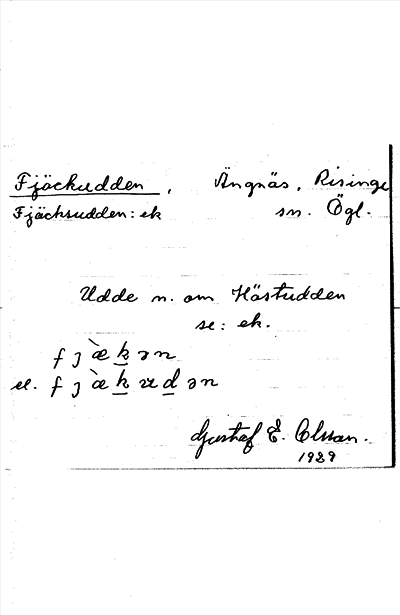 Fjäckudden, Ängnäs, Risinge
Fjäcksudden: ek sn. Ögl.
Udde n. om Hästudden
se: ek.
f j æ̀ k ə n
el. f j æ̀ k ʉ d ə n
Gustaf E. Olsson.
1929